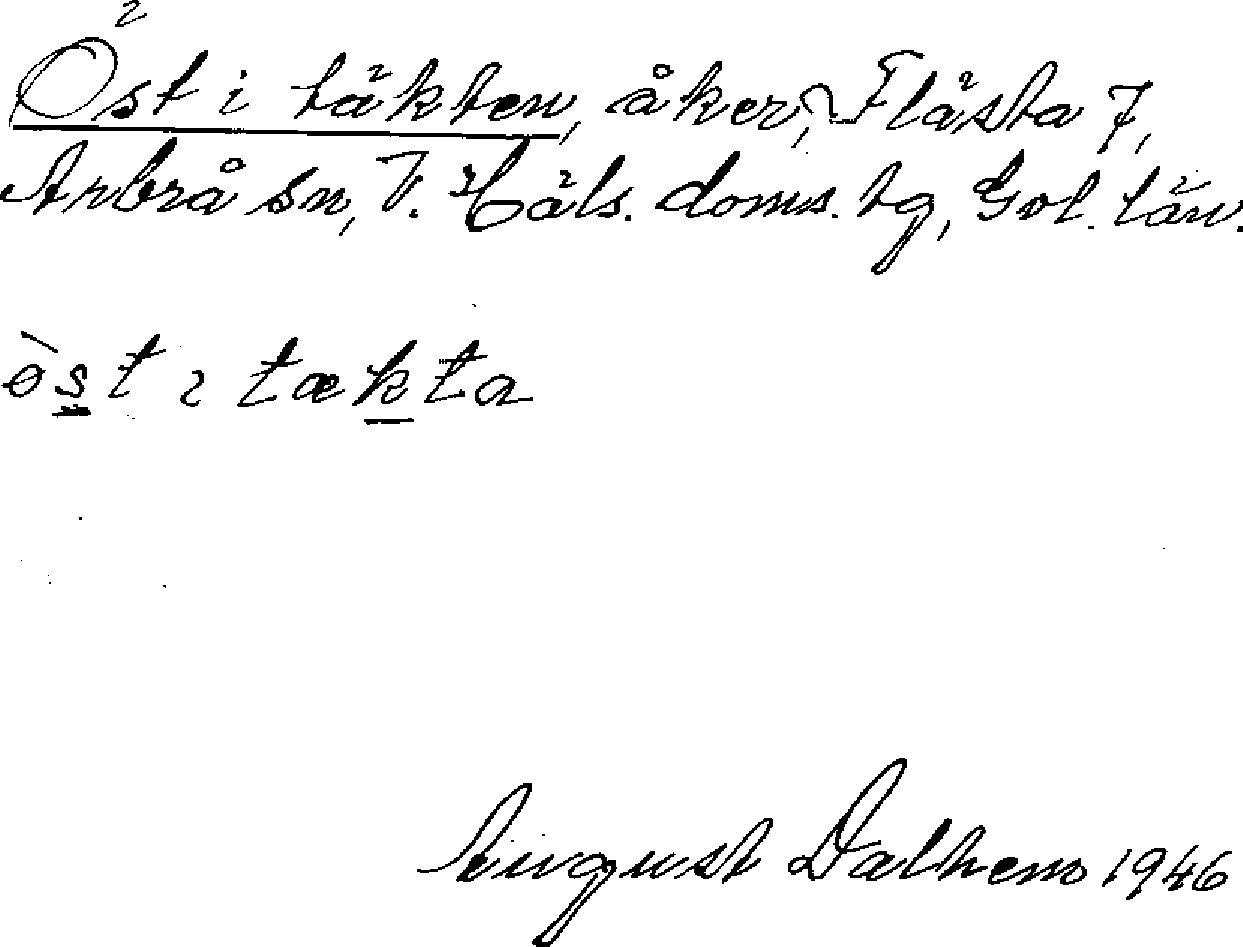 Öst i täkten, åker, Flästa 7,
Arbrå sn, V. Häls. doms. tg, Gvl. län.
òst ɩ tækta
August Dalhem 1946